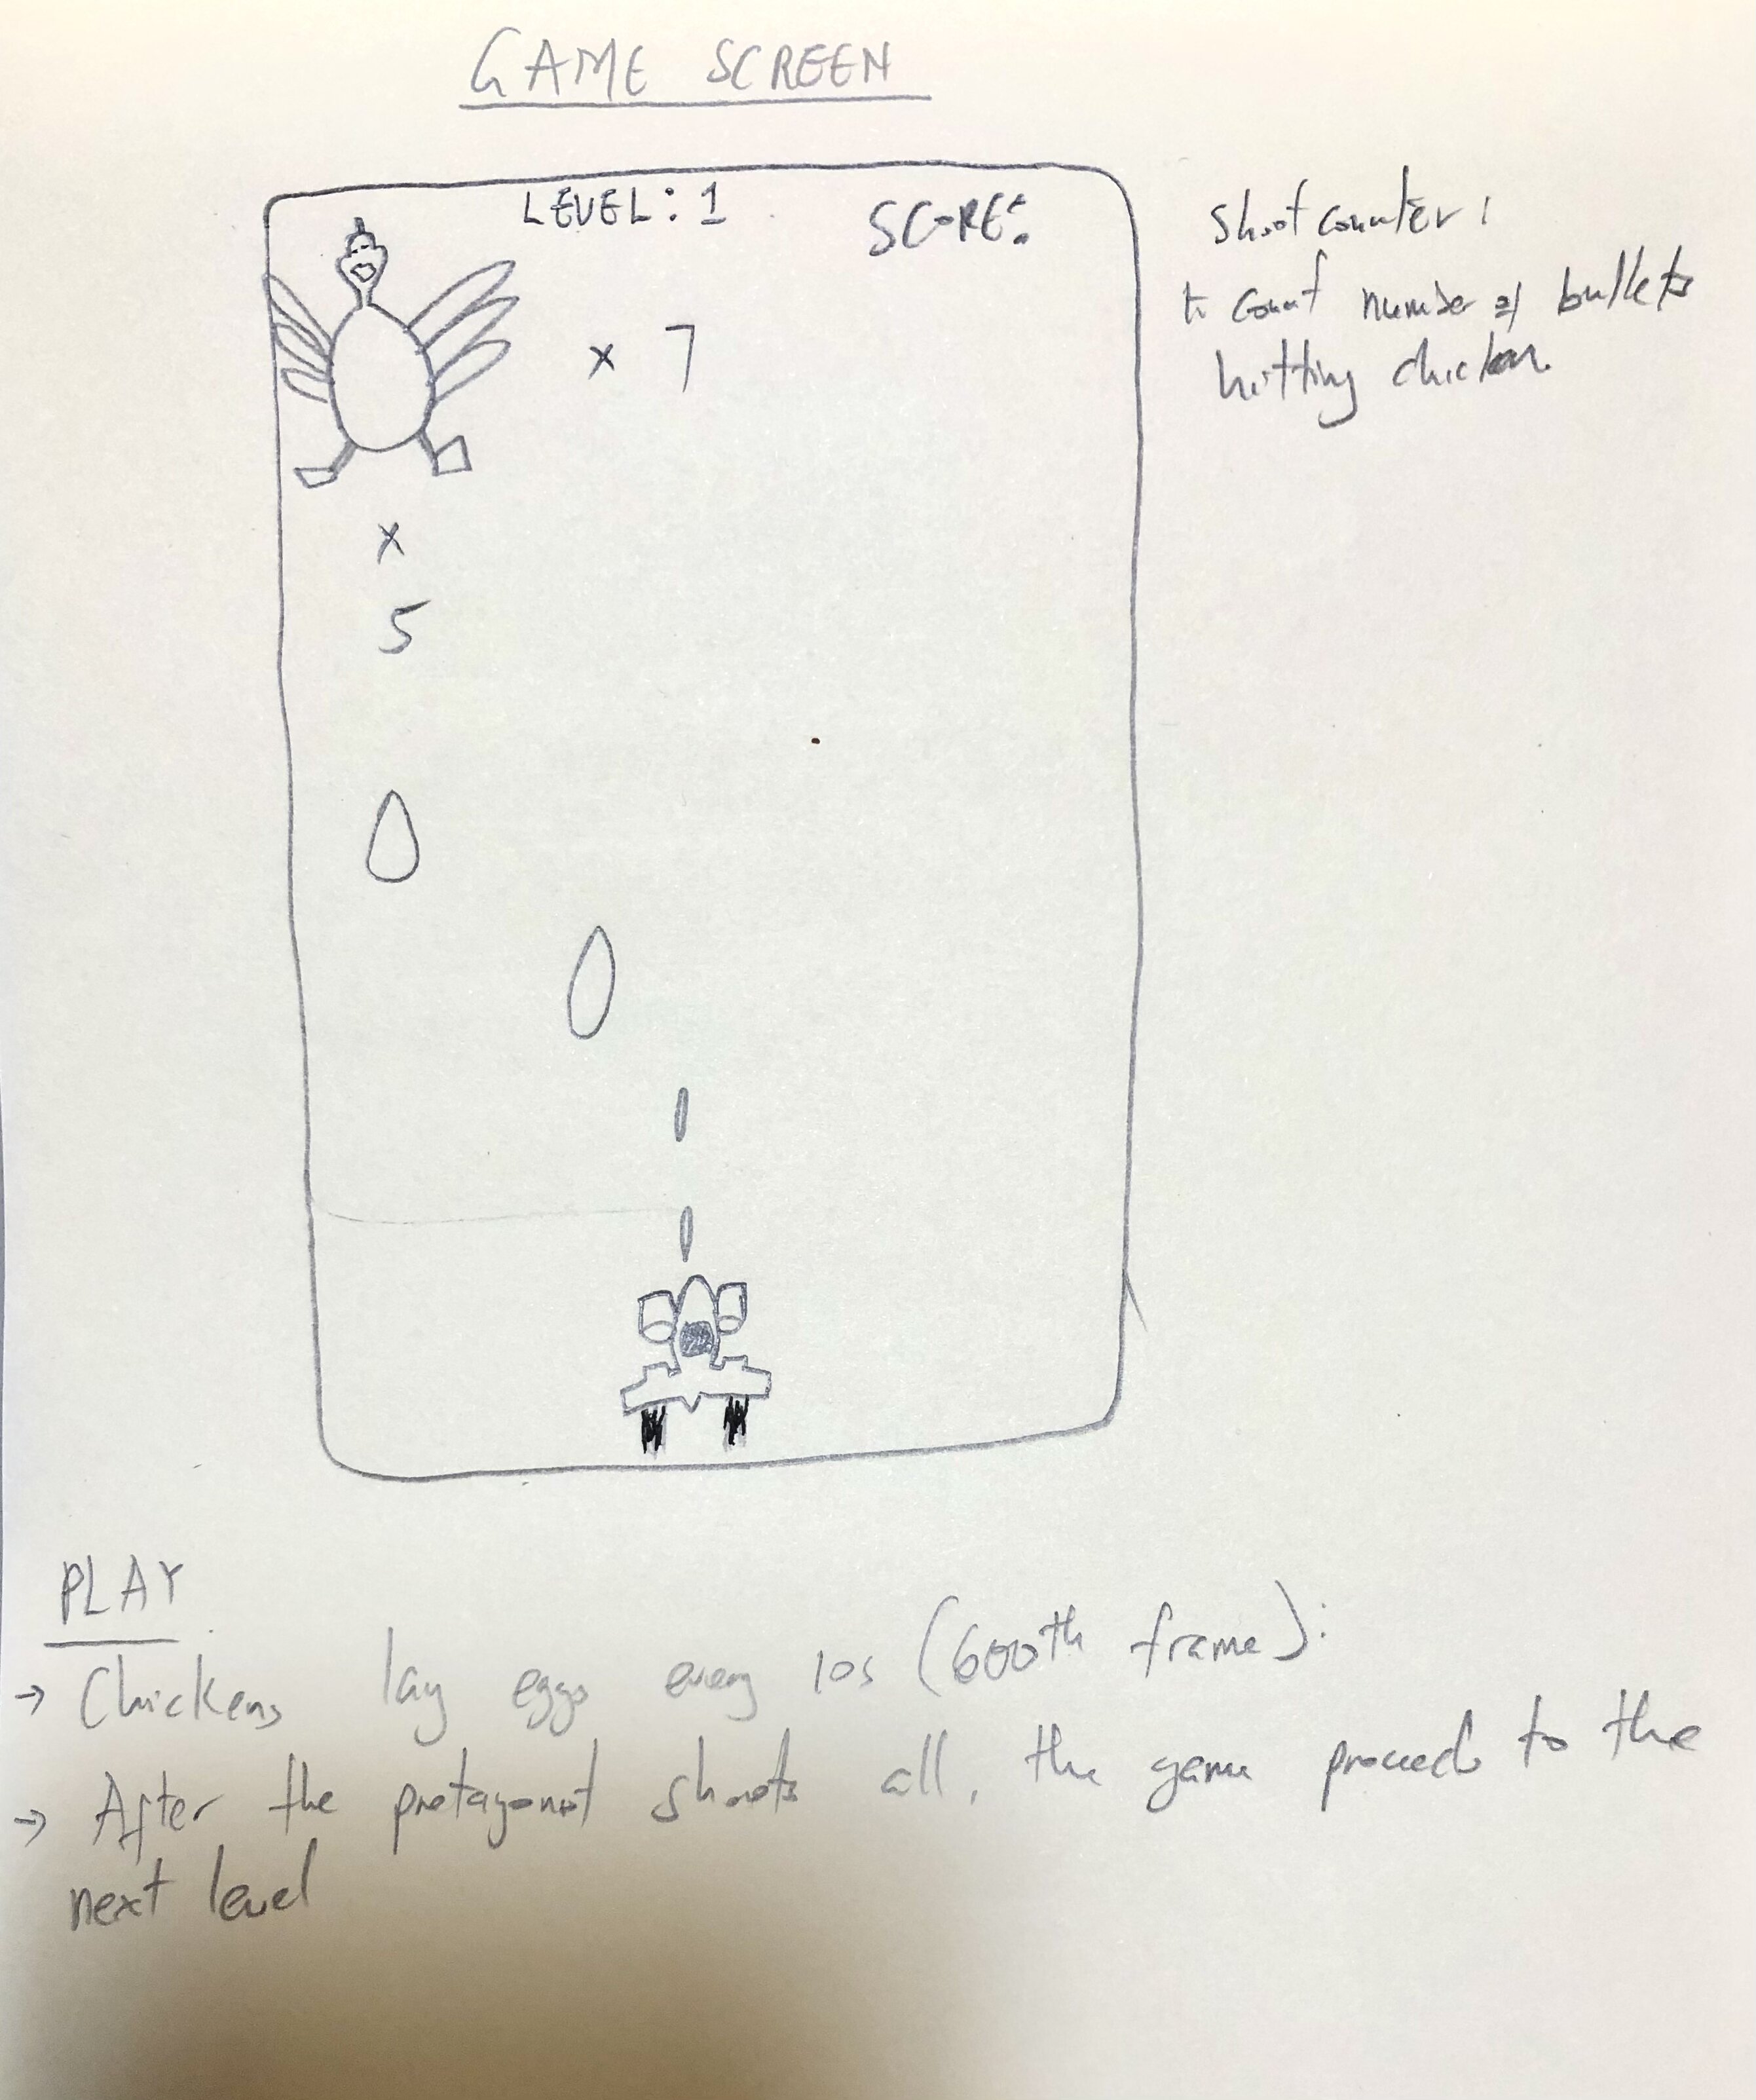 GAME SCREEN
LEVEL: 1
SCORE:
Shoot counter :
to count number of bullets
hitting chicken.
x 7
x
5
PLAY
→ Chickens lay eggs every 10s (600th frame):
→ After the protagonist shoots all, the game proceeds to the
next level